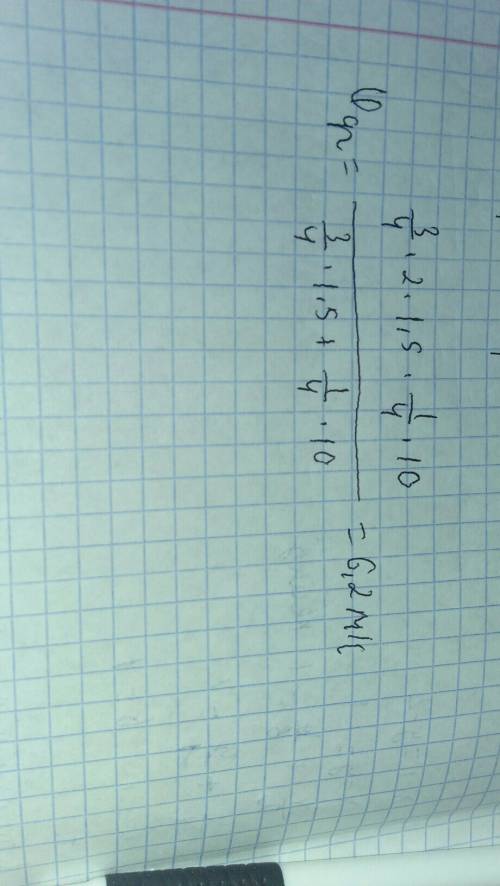 φ ср = (3/4 · 2 · 1,5 · 1/4 · 10) / (3/4 · 1,5 + 1/4 · 10) = 6,2